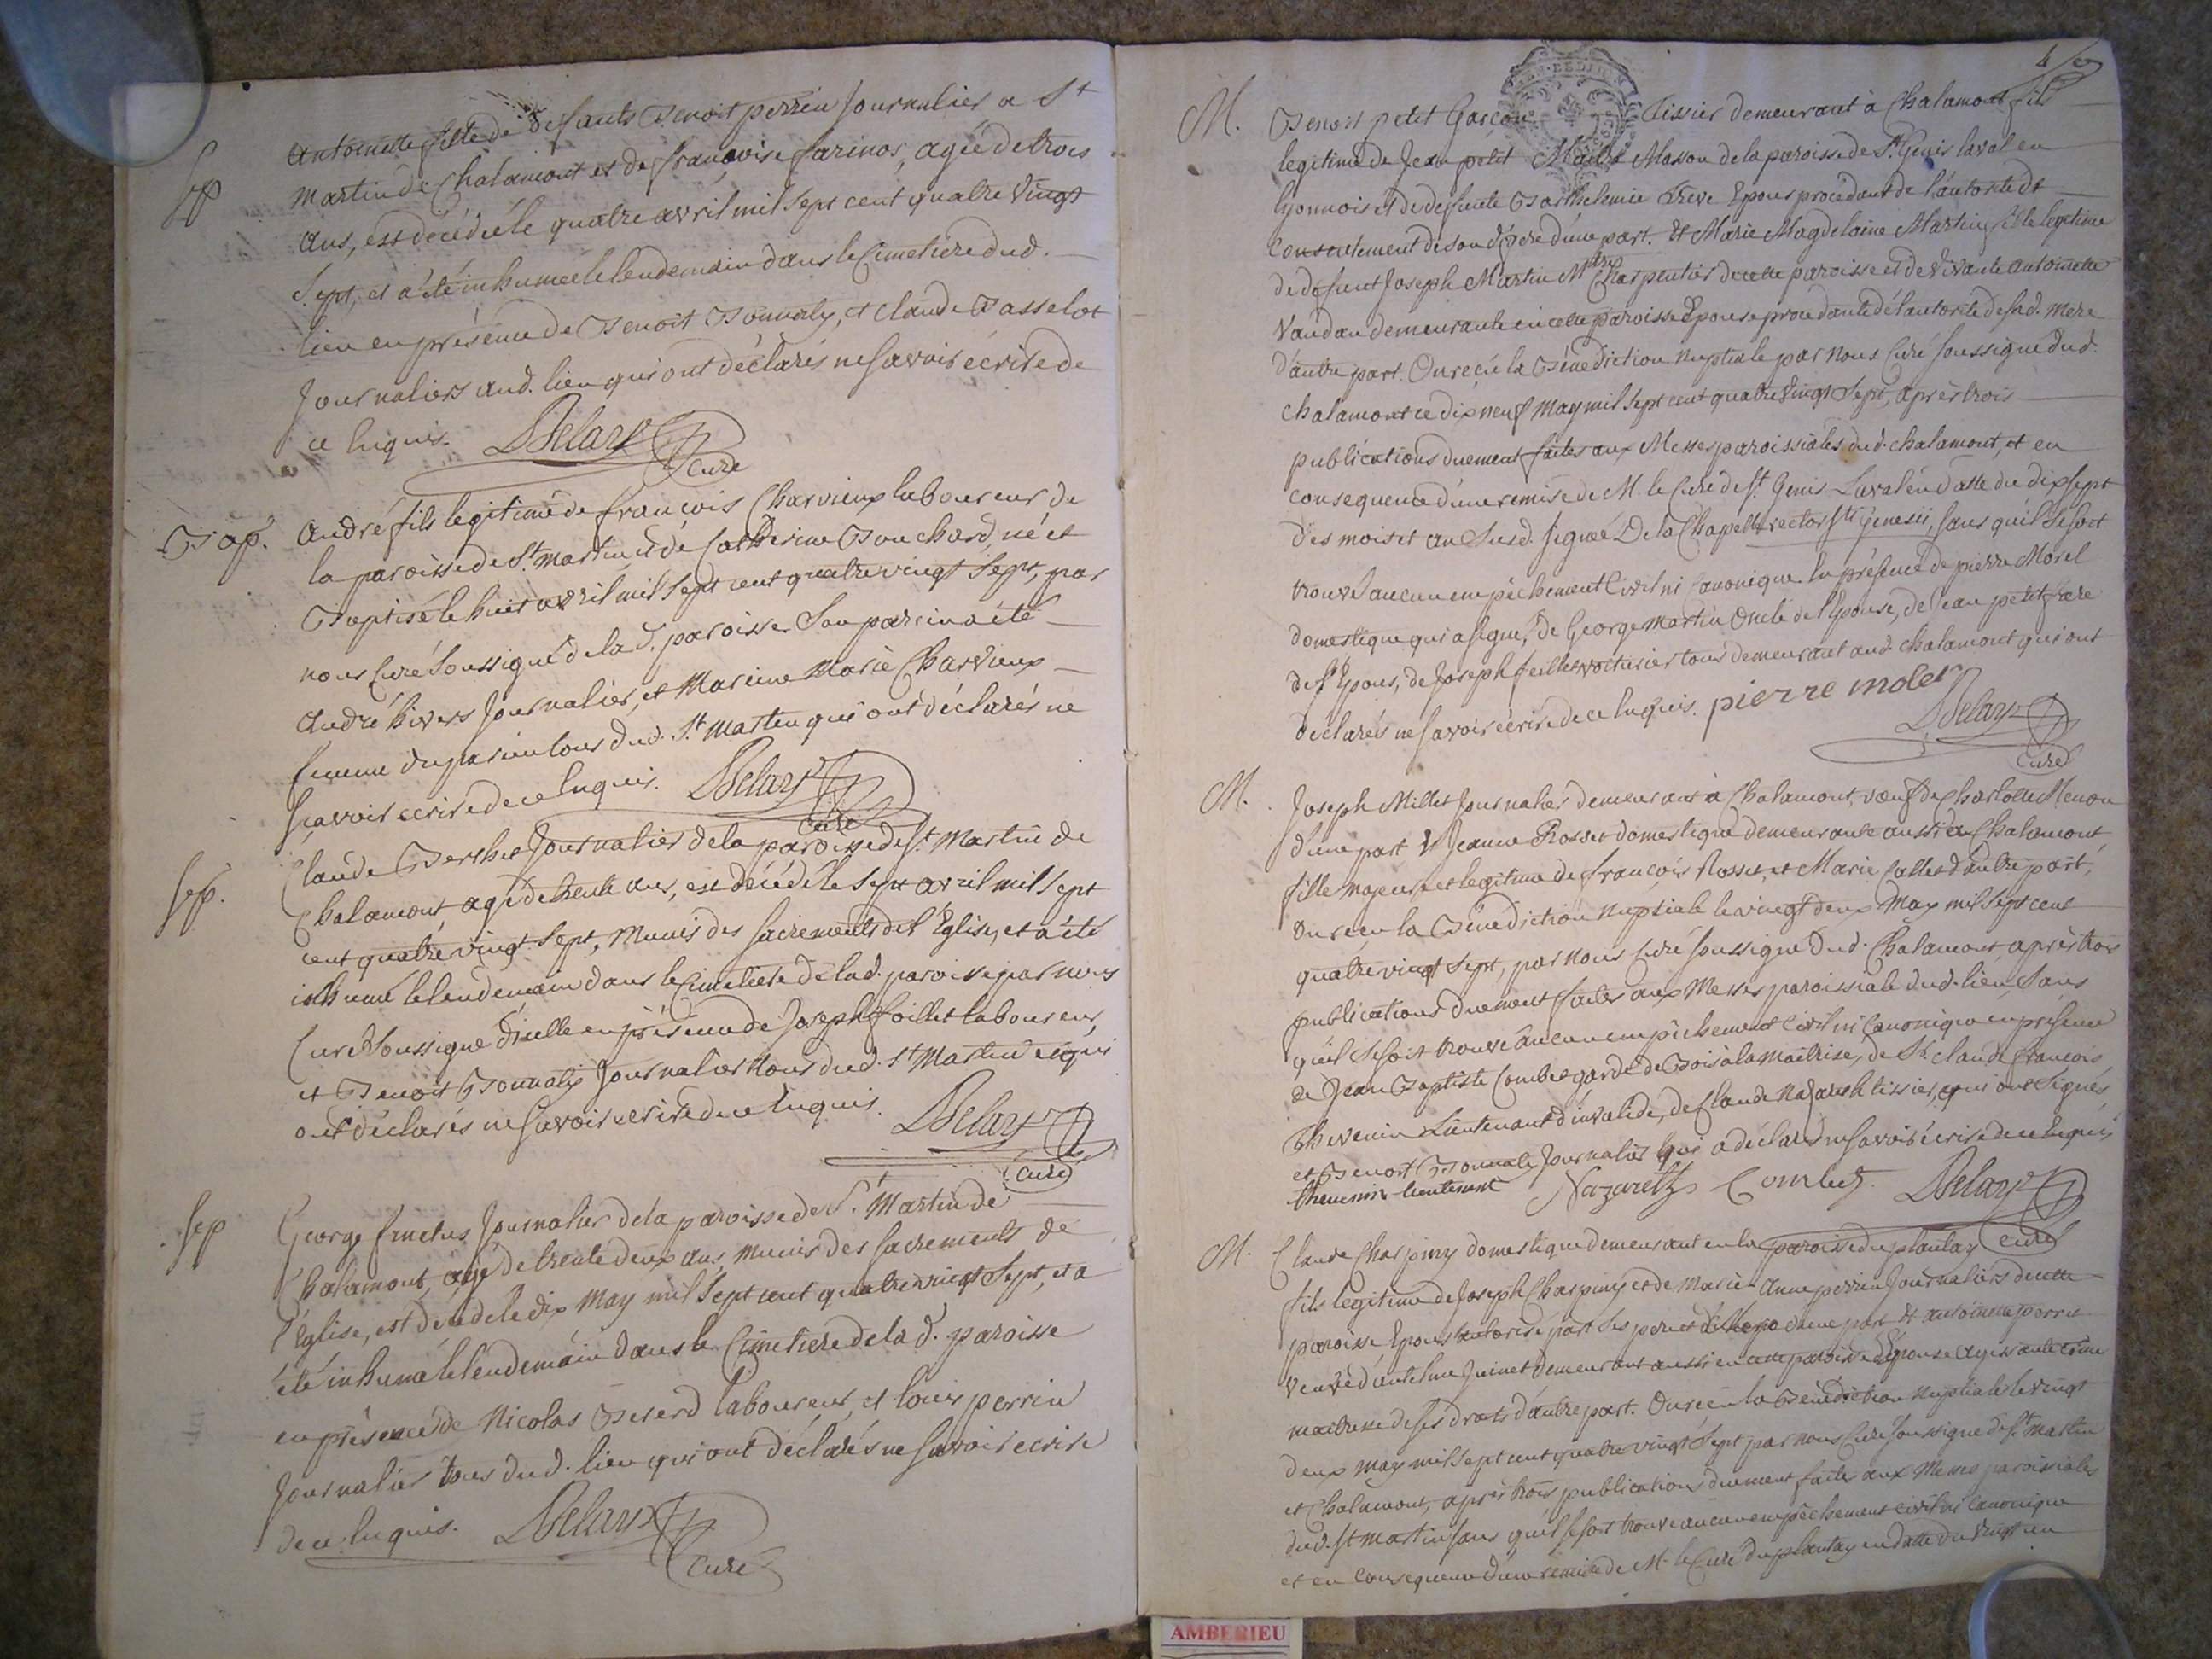 Sep
Antoinette fille de défunts Benoit perrin Journalier a St
Martin de Chalamont et de françoise farinos, agée de trois
ans, est décédée le quatre avril mil sept cent quatre vingt
Sept, et a été inhumée le lendemain dans le Cimetiere dud.
lieu en présence de Benoit Bonnaly, et Claude Vasselot
Journaliers aud. lieu qui ont déclarés ne savoir écrire de
ce Enquis. Delary Curé
Bap.
André fils legitime de françois Charvieux laboureur de
la paroisse de St. Martin et de Catherine Bouchard né et
Baptisé le huit avril mil Sept cent quatre vingt Sept, par
nous Curé Soussigné de la d. paroisse. Son parein a été
André hivers Journalier, et Mareine Marie Charvieux
femme du parein tous dud. St. Martin qui ont déclarés ne
sçavoir ecrire de ce Enquis. Delary Curé
Sep.
Claude Berthet Journalier de la paroisse de St. Martin de
Chalamont agé de trente ans, est décédé le Sept avril mil Sept
cent quatre vingt Sept, Munis des Sacrements de l'Eglise, et a été
inhumé le lendemain dans le Cimetiere de la d. paroisse par nous
Curé Soussigné d'icelle en présence de Joseph foillet laboureur,
et Benoit Bonnaly Journalier tous dud. St Martin et qui
ont déclarés ne Savoir ecrire de ce Enquis. Delary Curé
Sep
George fructus Journalier de la paroisse de St. Martin de
Chalamont, agé de trente deux ans, Munis des Sacrements de
l'Eglise, est décédé le dix May mil Sept cent quatre vingt Sept, et a
été inhumé le lendemain dans le Cimetiere de la d. paroisse
en présence de Nicolas Bererd laboureur, et Louis perrin
Journalier tous dud. lieu qui ont déclarés ne Savoir ecrire
de ce Enquis. Delary Curé
M.
Benoit petit Garçon Tissier demeurant à Chalamont fils
legitime de Jean petit Maitre Masson de la paroisse de St. Genis laval en
lyonnois et de defunte Barthelemie Epoux procedant de l'autorité et
Consentement de son d. Pere d'une part. Et Marie Magdelaine Martin fille legitime
de defunt Joseph Martin Mtre Charpentier de cette paroisse et de vivante antoinette
Vandan demeurante en cette paroisse Epouse procedante de l'autorité de sad. mere
d'autre part. Ont reçu la Bénédiction nuptiale par nous Curé soussigné dud.
Chalamont ce dix neuf May mil Sept cent quatre vingt Sept, après trois
publications duement faites aux Messes paroissiales dud. chalamont, et en
consequence d'une remise de M. le Curé de St. Genis Laval en datte du dix sept
des mois et an Susd. Signée De la Chapelle rector Sti genesii, sans qu'il Se soit
trouvé aucun empéchement Civil ni Canonique. En présence de pierre Morel
domestique qui a signé, de George Martin Oncle de l'Epouse, de Jean petit frere
de l'Epoux, de Joseph feillet voiturier tous demeurant aud. chalamont qui ont
déclarés ne Savoir écrire de ce Enquis. pierre molér Delary Curé
M.
Joseph Millet Journalier demeurant à Chalamont, veuf de Charlotte Menon
d'une part & Jeanne Rosset domestique demeurante aussi a Chalamont,
fille majeure et legitime de françois Rosset, et Marie Callet d'autre part,
Ont reçu la Bénédiction nuptiale le vingt deux May mil Sept cent
quatre vingt Sept, par nous Curé soussigné dud. Chalamont, après trois
publications duement faites aux Messes paroissiale dud. lieu, Sans
qu'il Se soit trouvé aucun empéchement Civil ni Canonique en présence
de Jean Baptiste Combet garde de Bois à la maitrise, de Sr. Claude françois
Thevenin Lieutenant d'invalide, de Claude Nazareth tissier, qui ont Signés
et Benoit Bonnaly Journalier qui a déclaré ne Savoir écrire de ce Enquis.
thevenin lieutenent Nazareth Combet Delary Curé
M.
Claude Charpiny domestique demeurant en la paroisse du plantay
fils legitime de Joseph Charpiny et de Marie-Anne perrin Journaliers de cette
paroisse Epoux autorisé par Ses pere et d'une part Et antoinette perret
veuve d'antelme Juinet demeurant aussi en cette paroisse Epouse agissante come
maitresse de Ses droits d'autre part. Ont reçu la Bénédiction nuptiale le vingt
deux may mil Sept cent quatre vingt Sept par nous Curé soussigné de St. Martin
et Chalamont, après trois publications duement faites aux Messes paroissiales
dud. St Martin sans qu'il Se soit trouvé aucun empéchement civil ni Canonique
et en Consequence d'une remise de M. le Curé du plantay en datte du vingt un
AMBERIEU